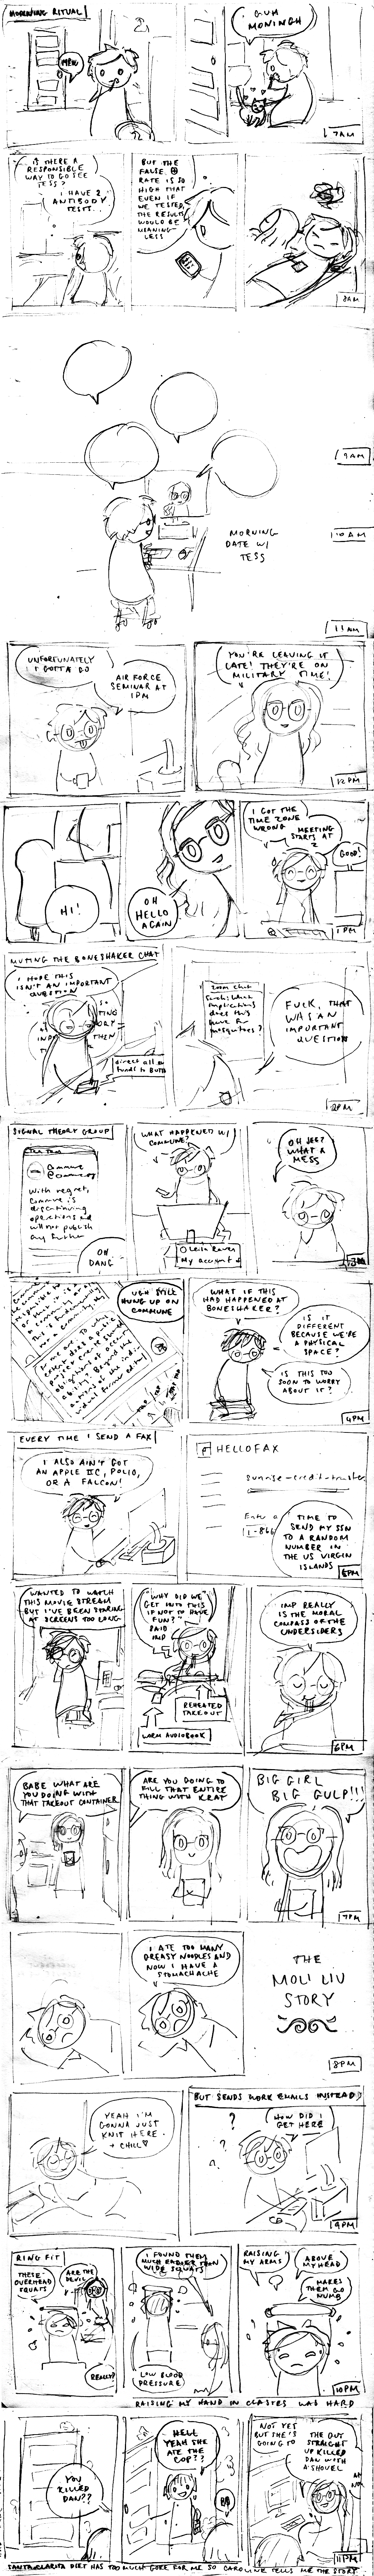 MORNING RITUAL
MEW
GUH
MONINGH
7AM
IS THERE A
RESPONSIBLE
WAY TO GO SEE
TESS?
I HAVE 2
ANTIBODY
TESTS...
BUT THE
FALSE ⊕
RATE IS SO
HIGH THAT
EVEN IF
WE TESTED,
THE RESULTS
WOULD BE
MEANING-
LESS
8AM
9AM
MORNING
DATE W/
TESS
10AM
11AM
UNFORTUNATELY
I GOTTA GO
AIR FORCE
SEMINAR AT
1PM
YOU'RE LEAVING IT
LATE! THEY'RE ON
MILITARY TIME!
12PM
HI!
OH
HELLO
AGAIN
I GOT THE
TIME ZONE
WRONG
MEETING
STARTS AT
2
GOOD!
1PM
MUTING THE BONESHAKER CHAT
I HOPE THIS
ISN'T AN IMPORTANT
QUESTION
direct all
funds to
Zoom chat
implications
does this
have for
mosquitoes?
FUCK, THAT
WAS AN
IMPORTANT
QUESTION
2PM
SIGNAL THEORY GROUP
Commune
With regret,
Commune is
discontinuing
operations and
will not publish
any further
OH
DANG
WHAT HAPPENED W/
COMMUNE?
My account of
OH JEEZ
WHAT A
MESS
3PM
UGH STILL
HUNG UP ON
COMMUNE
WHAT IF THIS
HAD HAPPENED AT
BONESHAKER?
IS IT
DIFFERENT
BECAUSE WE'RE
A PHYSICAL
SPACE?
IS THIS TOO
SOON TO WORRY
ABOUT IT?
4PM
EVERY TIME I SEND A FAX
I ALSO AIN'T GOT
AN APPLE IIC, POLIO,
OR A FALCON!
HELLOFAX
1-866
TIME TO
SEND MY SSN
TO A RANDOM
NUMBER IN
THE US VIRGIN
ISLANDS
5PM
WANTED TO WATCH
THIS MOVIE STREAM
BUT I'VE BEEN STARING
AT SCREENS TOO LONG
"WHY DID WE
GET INTO THIS
IF NOT TO HAVE
FUN?"
SAID
IMP
REHEATED
TAKEOUT
WORM AUDIOBOOK
IMP REALLY
IS THE MORAL
COMPASS OF THE
UNDERSIDERS
6PM
BABE WHAT ARE
YOU DOING WITH
THAT TAKEOUT CONTAINER
ARE YOU GOING TO
FILL THAT ENTIRE
THING WITH KRAT
BIG GIRL
BIG GULP!!!
7PM
I ATE TOO MANY
GREASY NOODLES AND
NOW I HAVE A
STOMACHACHE
THE
MOLI LIU
STORY
8PM
YEAH I'M
GONNA JUST
KNIT HERE
+ CHILL
BUT SENDS WORK EMAILS INSTEAD
?
?
HOW DID I
GET HERE
9PM
RING FIT
THESE
OVERHEAD
SQUATS
ARE THE
DEVIL
REALLY?
I FOUND THEM
MUCH EASIER THAN
WIDE SQUATS
LOW BLOOD
PRESSURE
RAISING
MY ARMS
ABOVE
MY HEAD
MAKES
THEM GO
NUMB
10PM
RAISING MY HAND IN CLASSES WAS HARD
YOU
KILLED
DAN??
HELL
YEAH SHE
ATE THE
COP??
NOT YET
BUT SHE'S
GOING TO
THE GUY
STRAIGHT
UP KILLED
DAN WITH
A SHOVEL
11PM
SANTA CLARITA DIET HAS TOO MUCH GORE FOR ME SO CAROLINE TELLS ME THE STORY